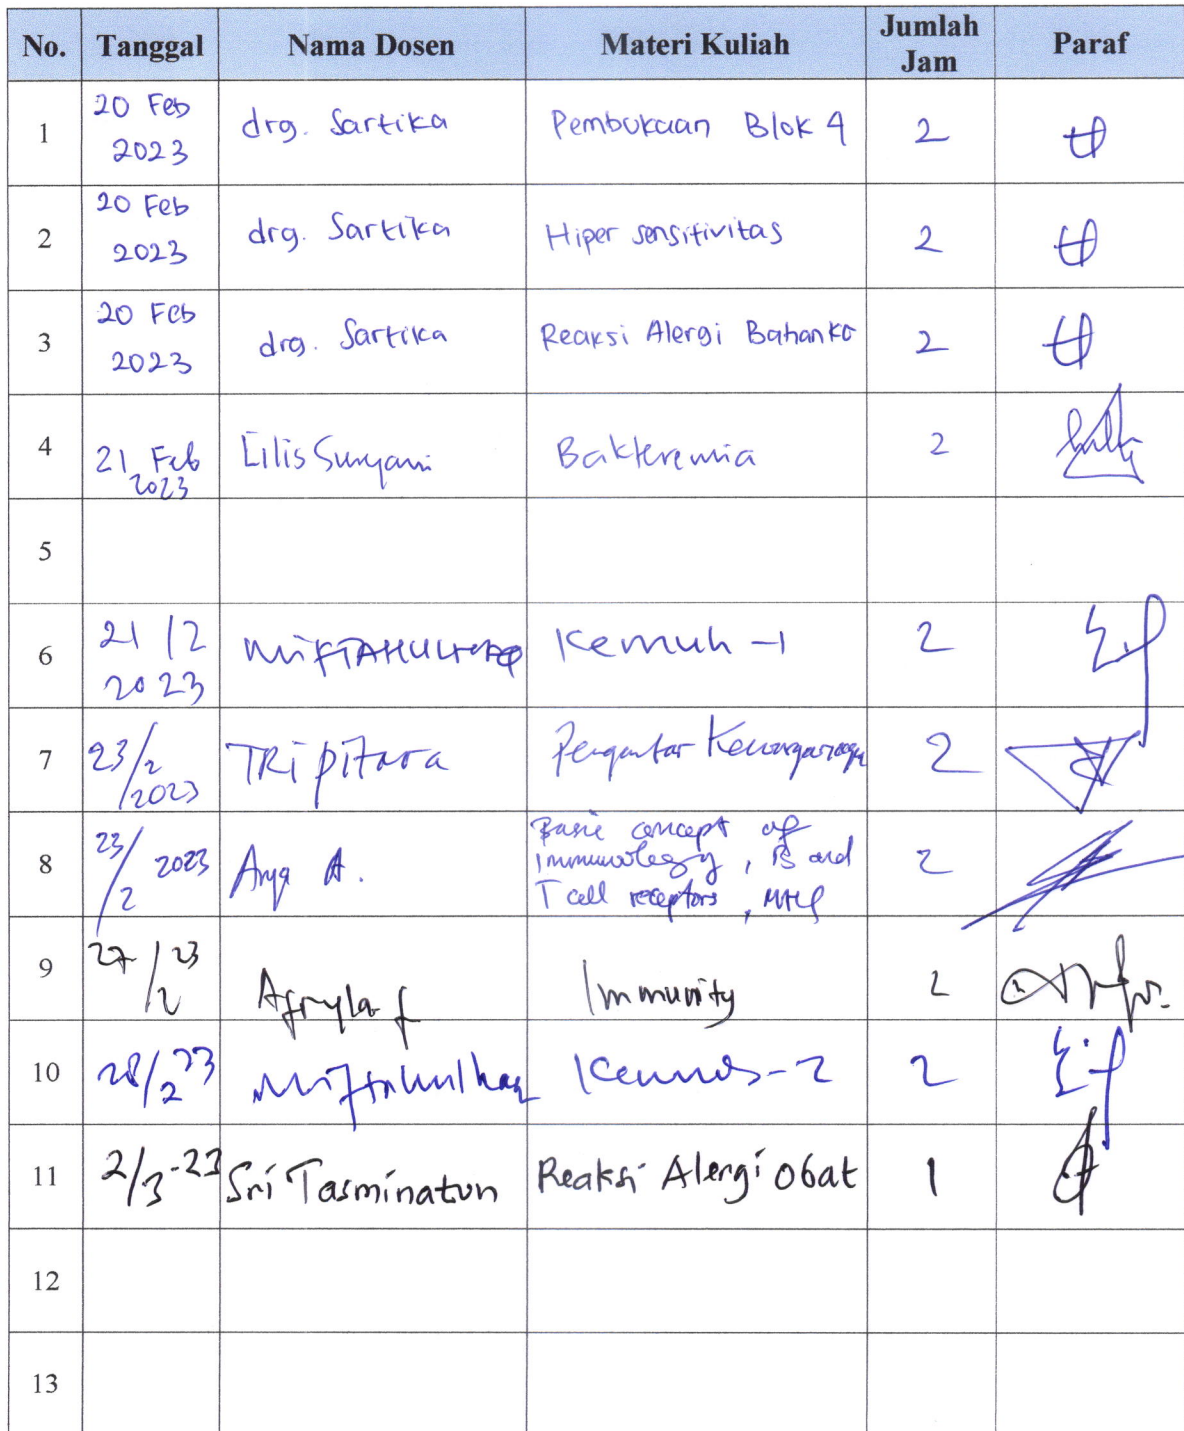 No. Tanggal Nama Dosen Materi Kuliah Jumlah Jam Paraf
1 20 Feb 2023 drg. Sartika Pembukaan Blok 4 2
2 20 Feb 2023 drg. Sartika Hiper sensitivitas 2
3 20 Feb 2023 drg. Sartika Reaksi Alergi Bahan KG 2
4 21 Feb 2023 Lilis Suryani Bakteremia 2
5
6 21/2 2023 MIFTAHULHAQ Kemuh-1 2
7 23/2/2023 TRi piTara Pengantar 2
8 23/2 2023 A. Basic concept of
immunology, B and
T cell receptors, MHC 2
9 27/2 23 Afryla f Immunity 2
10 28/2 23 Miftahulhaq 2
11 2/3-23 Sri Tasminatun Reaksi Alergi obat 1
12
13